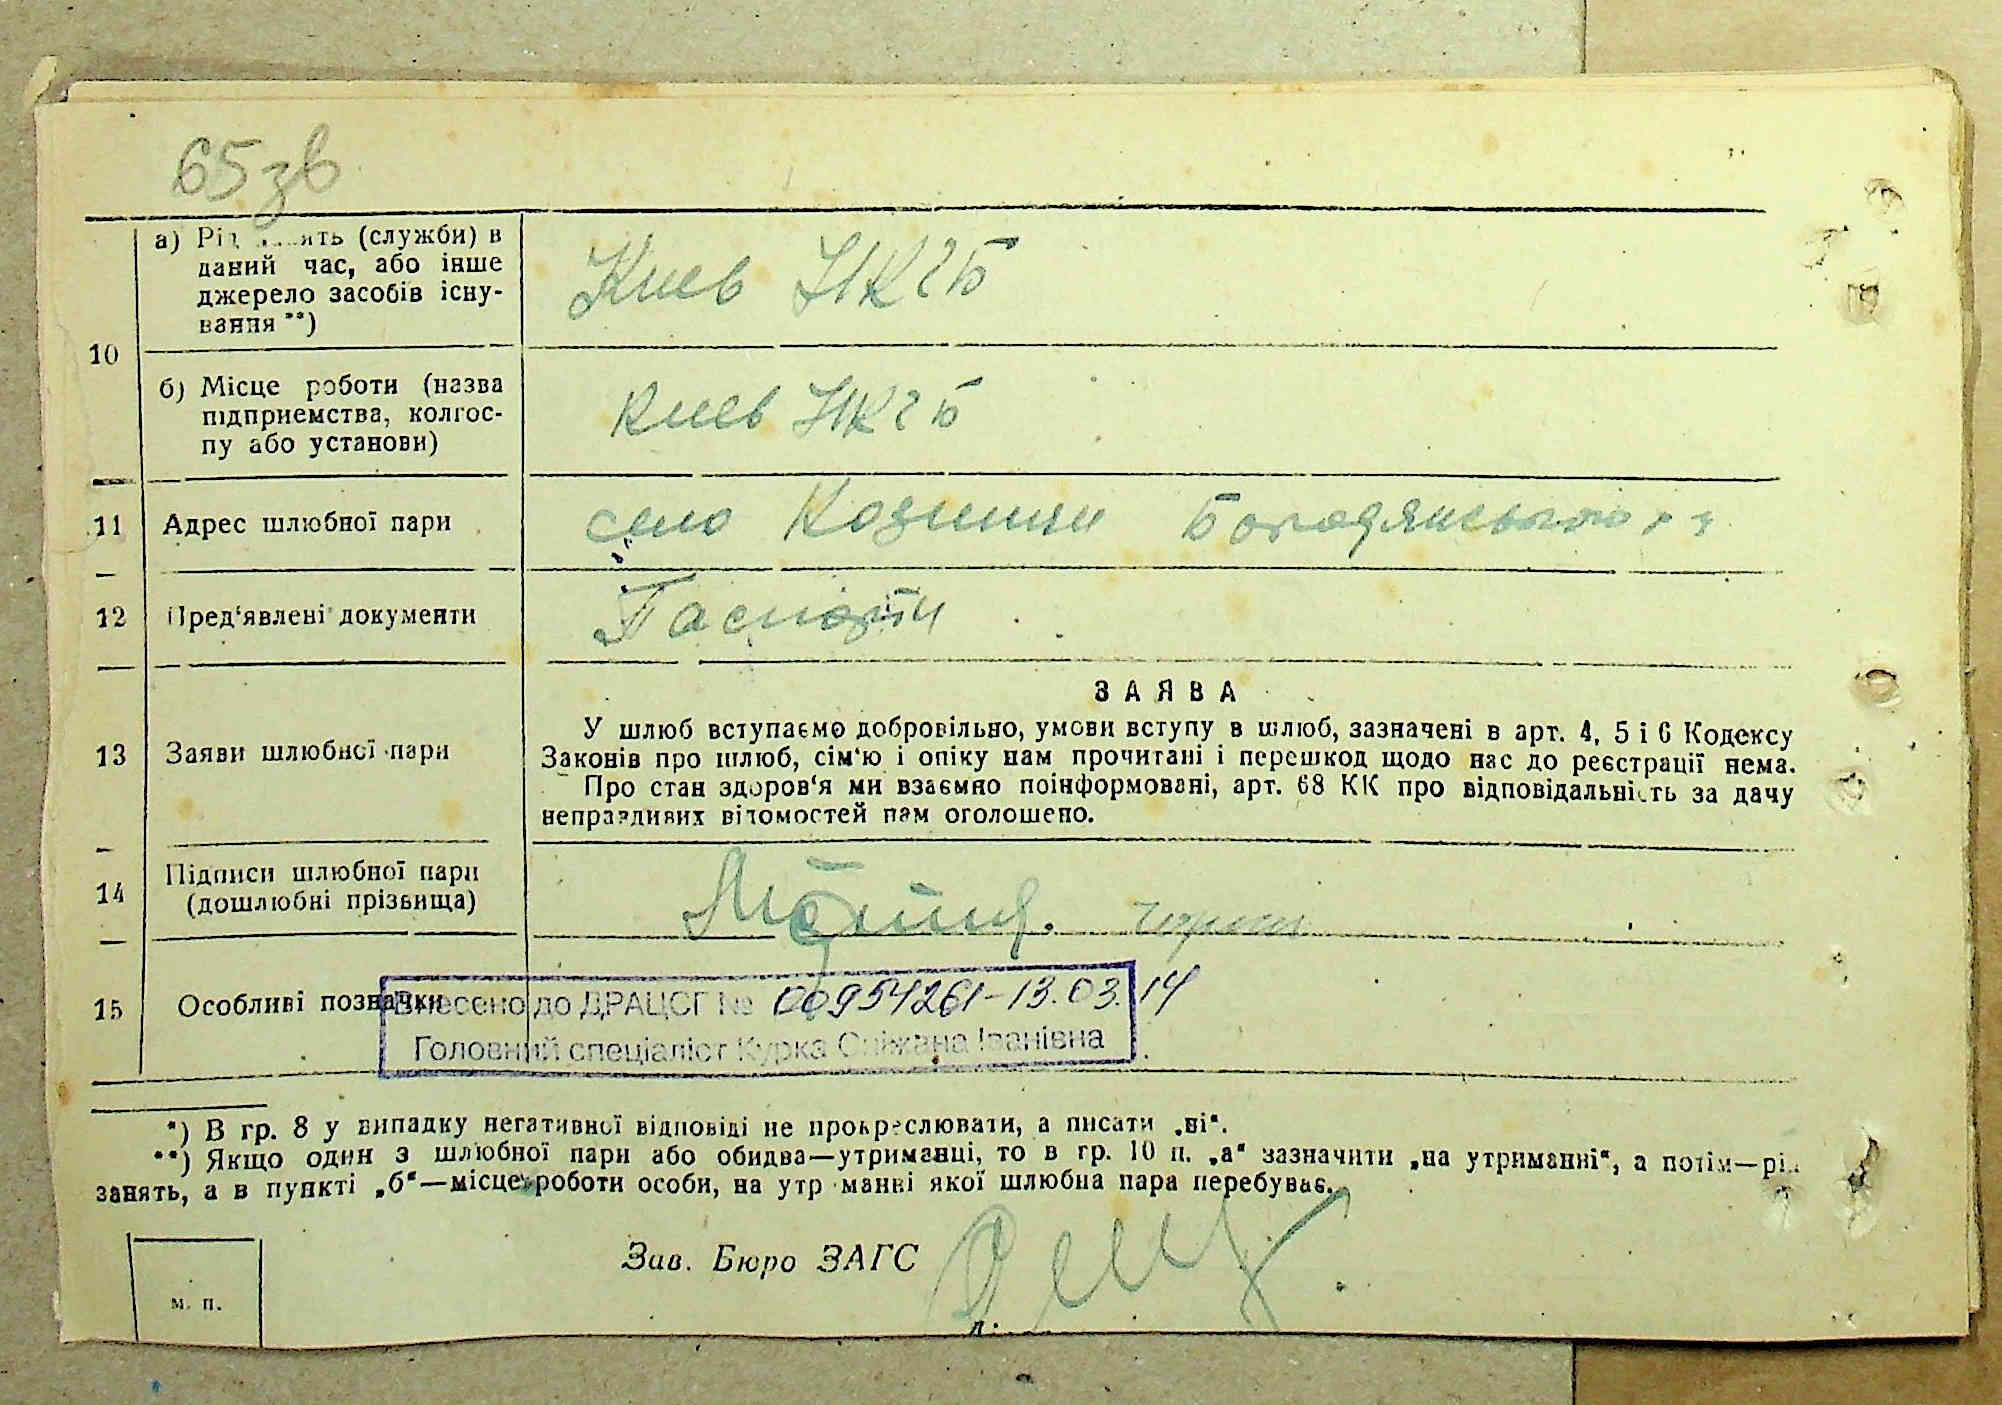 65зв
а) Рід занять (служби) в
даний час, або інше
джерело засобів існу-
вання **)
Киев НКГБ
10
б) Місце роботи (назва
підприемства, колгос-
пу або установи)
Киев НКГБ
11 Адрес шлюбної пари
село Бородянського
12 Пред‘явлені документи
Паспорти
ЗАЯВА
13 Заяви шлюбної пари
У шлюб вступаємо добровільно, умови вступу в шлюб, зазначені в арт. 4, 5 і 6 Кодексу
Законів про шлюб, сім‘ю і опіку нам прочитані і перешкод щодо нас до реєстрації нема.
Про стан здоров‘я ми взаємно поінформовані, арт. 68 КК про відповідальність за дачу
неправдивих відомостей нам оголошено.
14 Підписи шлюбної пари
(дошлюбні прізвища)
15 Особливі позначки
Внесено до ДРАЦСГ № 00954261-13.03.14
Головний спеціаліст Курка Сніжана Іванівна
*) В гр. 8 у випадку негативної відповіді не прокреслювати, а писати „ні“.
**) Якщо один з шлюбної пари або обидва—утриманці, то в гр. 10 п. „а“ зазначити „на утриманні“, а потім—рід
занять, а в пункті „б“—місце роботи особи, на утриманні якої шлюбна пара перебуває.
Зав. Бюро ЗАГС
м. п.